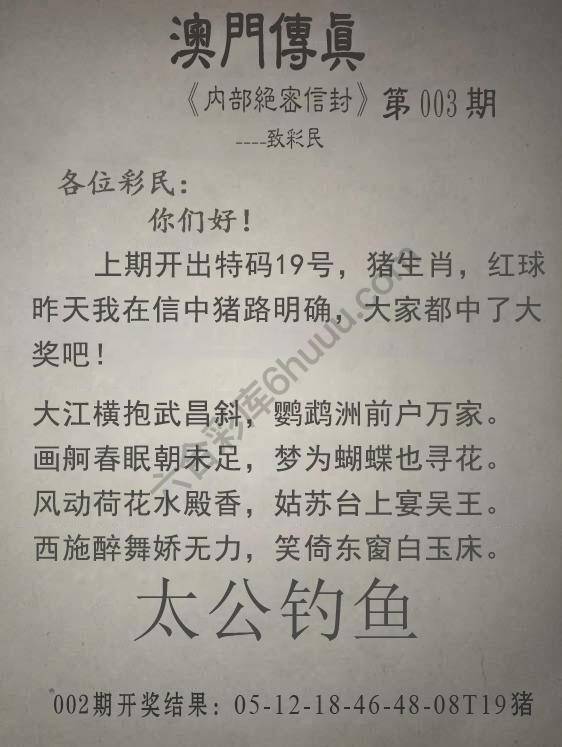 澳門傳眞
《内部絕密信封》第003期
----致彩民
各位彩民：
你们好！
上期开出特码19号，猪生肖，红球
昨天我在信中猪路明确，大家都中了大
奖吧！
大江横抱武昌斜，鹦鹉洲前户万家。
画舸春眠朝未足，梦为蝴蝶也寻花。
风动荷花水殿香，姑苏台上宴吴王。
西施醉舞娇无力，笑倚东窗白玉床。
太公钓鱼
002期开奖结果：05-12-18-46-48-08T19猪
六合彩库6huuu.com